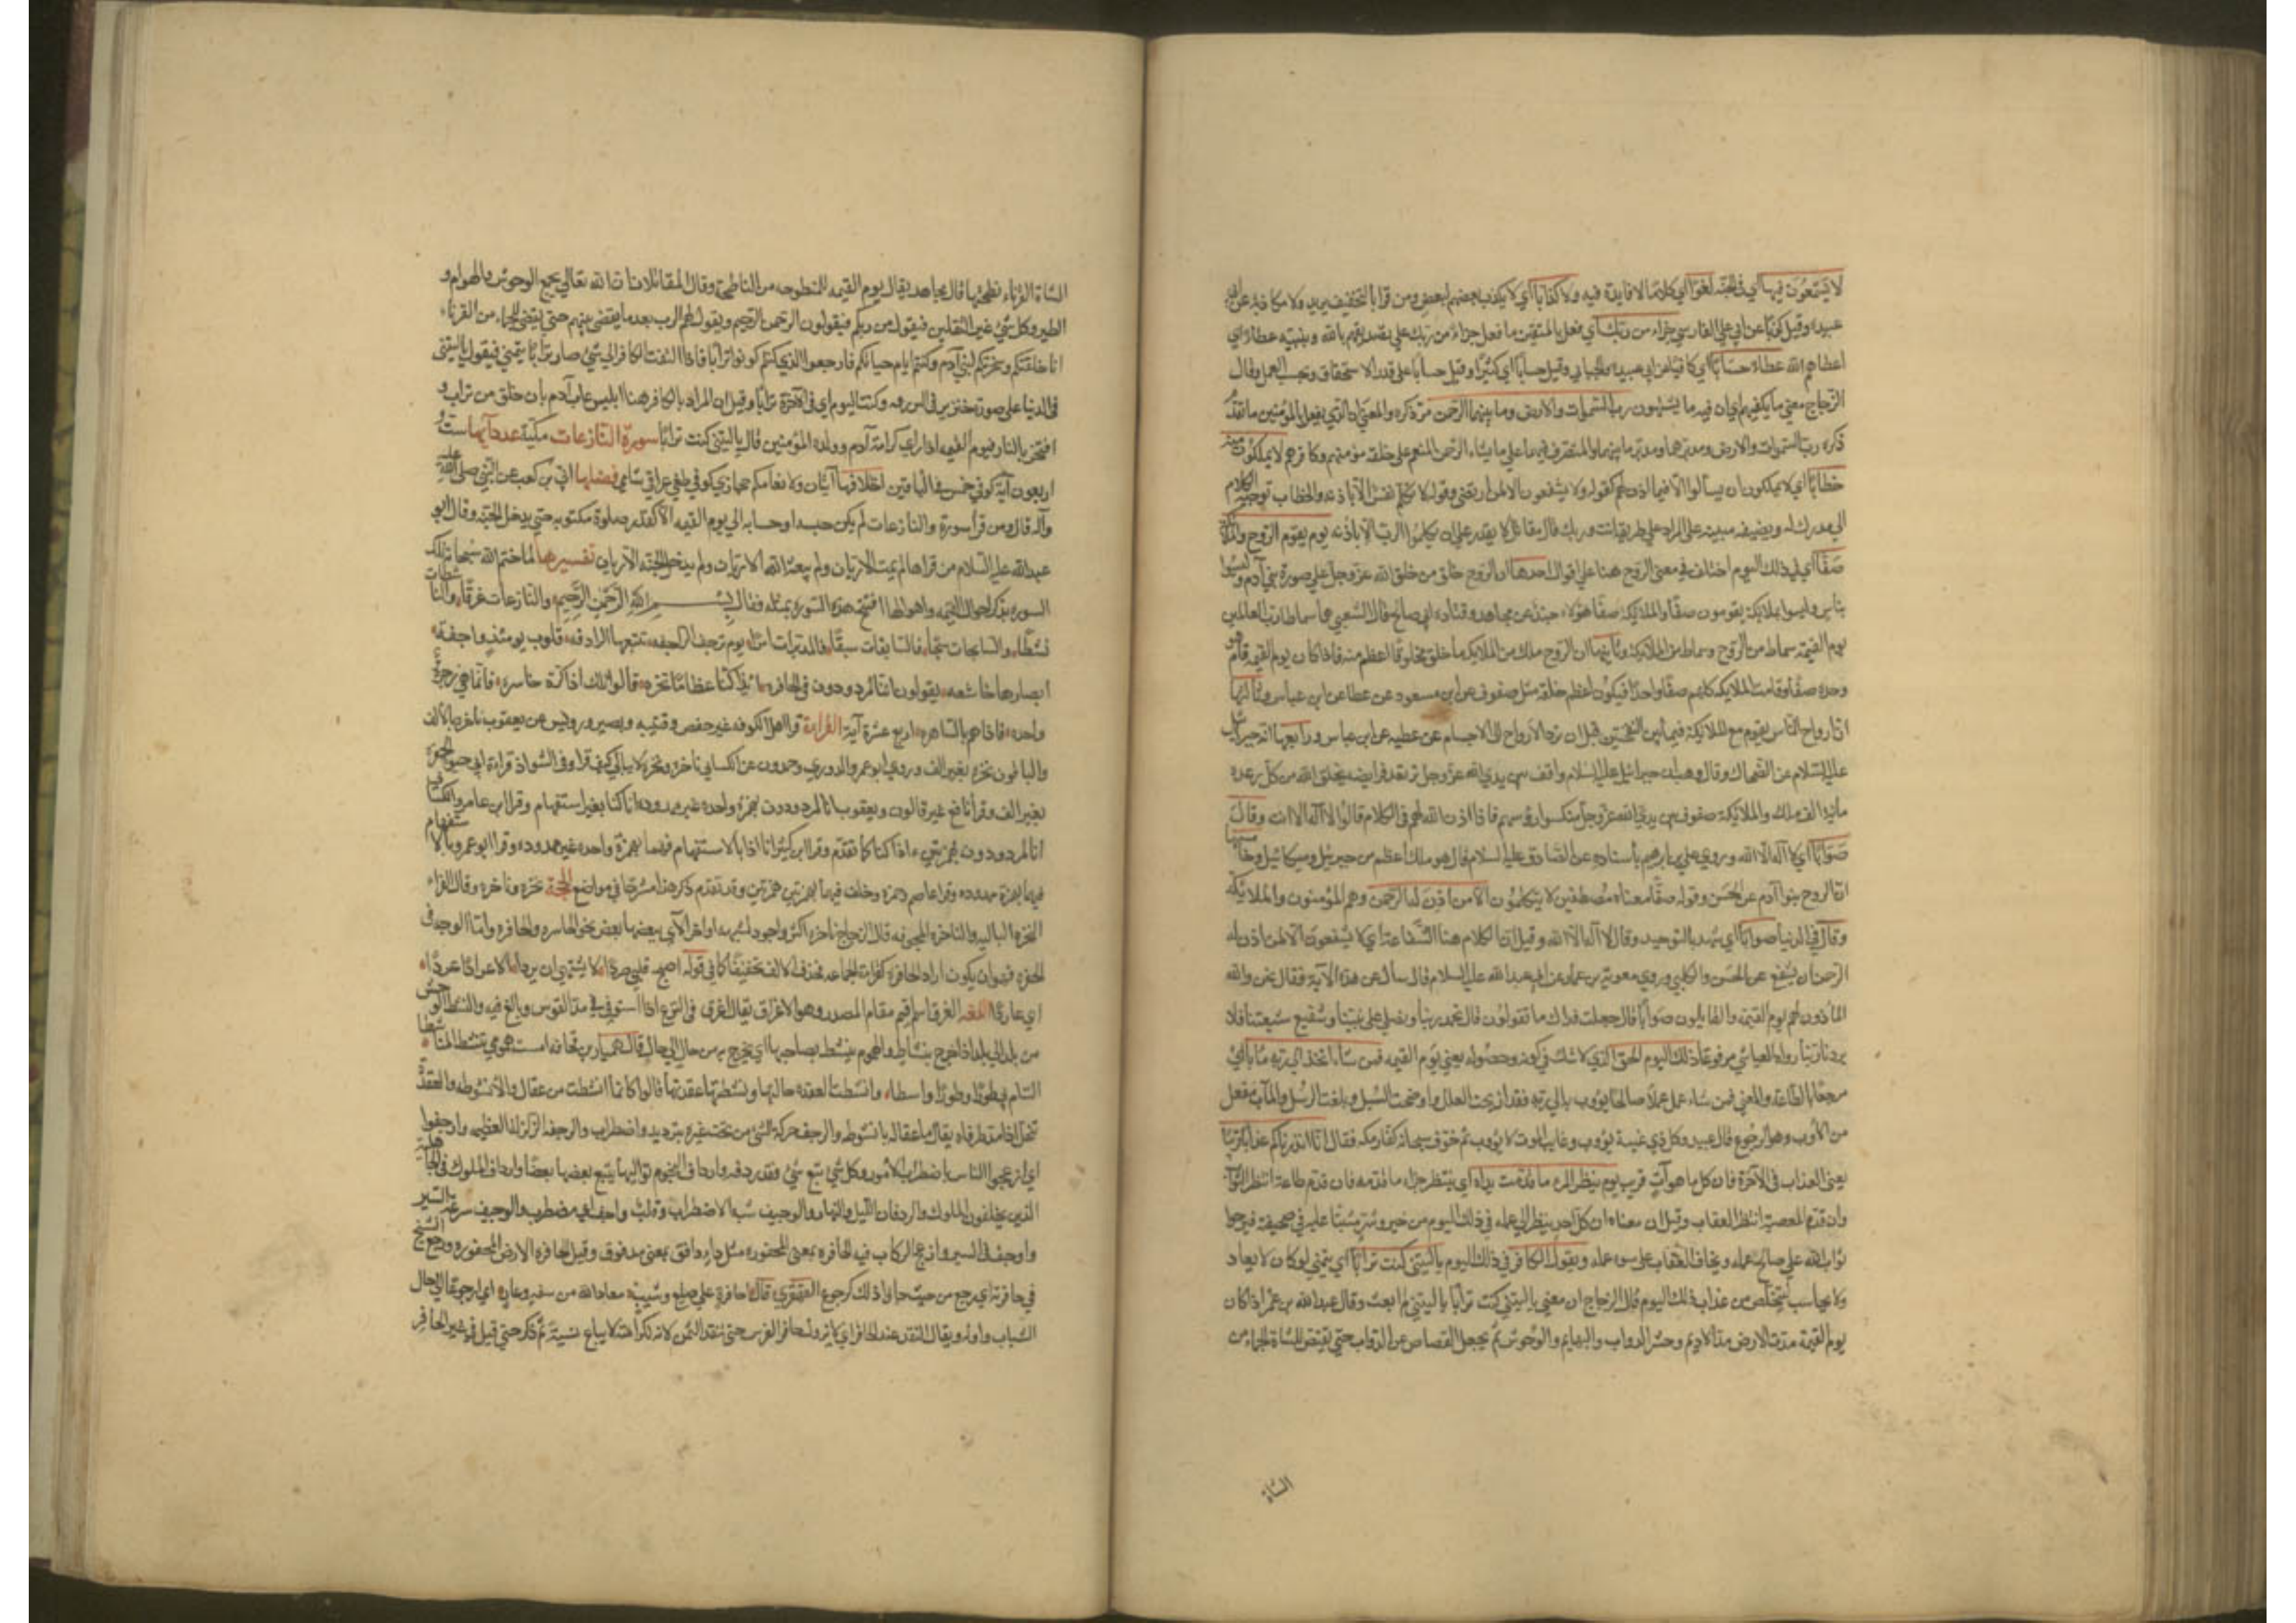 لا يسمعون فيها اي في الجنة لغوا اي كلاما لا فايدة فيه ولا كذابا اي لا يكذب بعضهم لبعض ومن قرا بالتخفيف يريد ولا مكاذبة عن ابي
عبيدة وقيل كذبا عن ابي علي الفارسي جزاء من ربك اي فعل بالمتقين ما فعل جزاء من ربك على تصديقهم بالله ونبيه عطاء اي
اعطاهم الله عطاء حسابا اي كافيا عن ابي عبيدة والجبائي وقيل حسابا اي كثيرا وقيل حسابا على قدر الاستحقاق وبحسب العمل وقال
الزجاج معنى ما يكفيهم اي ان فيه ما يشتهون رب السموات والارض وما بينهما الرحمن مر ذكره والمعنى ان الذي يفعل بالمؤمنين ما تقدم
ذكره رب السموات والارض ومدبرهما ومدبر ما بينهما والمتصرف فيهما على ما يشاء الرحمن المنعم على خلقه مؤمنهم وكافرهم لا يملكون منه
خطابا اي لا يملكون ان يسألوا الا فيما اذن لهم كقوله ولا يشفعون الا لمن ارتضى وقوله لا تكلم نفس الا باذنه والخطاب توجيه الكلام
الى مدرك له وبصيغة مبينة على المراد على طريقة انت وربك قال مقاتل لا يقدر على ان يكلموا الرب الا باذنه يوم يقوم الروح والملائكة
صفا اي في ذلك اليوم اختلف في معنى الروح هنا على اقوال احدها ان الروح خلق من خلق الله عز وجل على صورة بني آدم وليسوا
بناس وليسوا بملائكة يقومون صفا والملائكة صفا هؤلاء جند عن مجاهد وقتادة وابي صالح قال الشعبي هما سماطا رب العالمين
يوم القيمة سماط من الروح وسماط من الملائكة وثانيها ان الروح ملك من الملائكة ما خلق الله مخلوقا اعظم منه فاذا كان يوم القيمة قام هو
وحده صفا وقامت الملائكة كلهم صفا واحدا فيكون اعظم خلقه مثل صفوفهم عن ابن مسعود عن عطا عن ابن عباس وثالثها
ان ارواح الناس يقوم مع الملائكة فيما بين النفختين قبل ان ترد الارواح الى الاجسام عن عطية عن ابن عباس ورابعها انه جبرئيل
عليه السلام عن الضحاك وقال وهب ان جبرائيل عليه السلام واقف بين يدي الله عز وجل ترتعد فرايصه يخلق الله من كل رعدة
مائة الف ملك والملائكة صفوف بين يدي الله عز وجل منكسوا رؤسهم فاذا اذن الله لهم في الكلام قالوا لا آله الا انت وقال
صوابا اي لا اله الا الله وروى علي بن ابرهيم باسناده عن الصادق عليه السلام قال هو ملك اعظم من جبرئيل وميكائيل وخامسها
ان الروح بنوا آدم عن الحسن وقوله صفا معناه مصطفين لا يتكلمون الا من اذن له الرحمن وهم المؤمنون والملائكة
وقال في الدنيا صوابا اي شهد بالتوحيد وقال لا اله الا الله وقيل ان الكلام هنا الشفاعة اي لا يشفعون الا لمن اذن له
الرحمن ان يشفع عن الحسن والكلبي وروى معوية بن عمار عن ابي عبد الله عليه السلام قال سأل عن هذه الآية فقال نحن والله
المأذون لهم يوم القيمة والقايلون صوابا قال جعلت فداك ما تقولون قال نمجد ربنا ونصلي على نبينا ونشفع لشيعتنا فلا
يردنا ربنا رواه العياشي مرفوعا ذلك اليوم الحق الذي لا شك في كونه وحصوله يعني يوم القيمة فمن شاء اتخذ الى ربه مآبا اي
مرجعا بالطاعة والمعنى فمن شاء عمل عملا صالحا يؤوب به الى ربه فقد ازيحت العلل واوضحت السبل وبلغت الرسل والمآب مفعل
من الاوب وهو الرجوع قال عبيد وكل ذي غيبة يؤوب وغايب الموت لا يؤوب ثم خوف سبحانه كفار مكة فقال انا انذرناكم عذابا قريبا
يعني العذاب في الآخرة فان كل ما هو آت قريب يوم ينظر المرء ما قدمت يداه اي ينتظر جزاء ما قدمه فان قدم طاعة انتظر الثواب
وان قدم المعصية انتظر العقاب وقيل ان معناه ان كل احد ينظر الى عمله في ذلك اليوم من خير وشر مثبتا عليه في صحيفة فيرجوا
ثواب الله على صالح عمله ويخاف العقاب على سوء عمله ويقول الكافر في ذلك اليوم يا ليتني كنت ترابا اي يتمنى لو كان لا يعاد
ولا يحاسب ليتخلص من عذاب ذلك اليوم قال الزجاج ان معنى يا ليتني كنت ترابا يا ليتني لم ابعث وقال عبد الله بن عمر اذا كان
يوم القيمة مدت الارض مد الاديم وحشر الدواب والبهايم والوحوش ثم يجعل القصاص عن الدواب حتى يقتص للشاة الجماء من
الشاة
الشاة القرناء نطحتها قال مجاهد يقال يوم القيمة للمنطوحة من الناطحة وقال المقاتلان ان الله تعالى يجمع الوحوش والهوام و
الطير وكل شيء غير الثقلين فيقول من ربكم فيقولون الرحمن الرحيم ويقول لهم الرب بعد ما يقضي بينهم حتى يقتص للجماء من القرناء
انا خلقتكم وسخرتكم لبني آدم وكنتم ايام حياتكم فارجعوا الذي كنتم كونوا ترابا فاذا التفت الكافر الى شيء صار ترابا يتمنى فيقول يا ليتني
في الدنيا على صورة خنزير وكنت اليوم اي في الآخرة ترابا وقيل ان المراد بالكافر هنا ابليس عاب آدم بان خلق من تراب و
افتخر بالنار فيوم القيمة اذا راى كرامة آدم وولده المؤمنين قال يا ليتني كنت ترابا سورة النازعات مكية عدد آيها ست و
اربعون آية كوفي خمس في الباقين اختلافها آيتان ولانعامكم حجازي كوفي طغى عراقي شامي فضلها ابي بن كعب عن النبي صلى الله عليه
وآله قال ومن قرأ سورة والنازعات لم يكن حبسه وحسابه الى يوم القيمة الا كقدر صلوة مكتوبة حتى يدخل الجنة وقال ابو
عبد الله عليه السلام من قرأها لم يمت الا ريان ولم يبعثه الله الا ريان ولم يدخل الجنة الا ريان تفسيرها لما ختم الله سبحانه تلك
السورة بذكر احوال القيمة واهوالها افتتح هذه السورة بمثله فقال بسم الله الرحمن الرحيم والنازعات غرقا والناشطات
نشطا والسابحات سبحا فالسابقات سبقا فالمدبرات امرا يوم ترجف الراجفة تتبعها الرادفة قلوب يومئذ واجفة
ابصارها خاشعة يقولون ائنا لمردودون في الحافرة ائذا كنا عظاما نخرة قالوا تلك اذا كرة خاسرة فانما هي زجرة
واحدة فاذا هم بالساهرة اربع عشرة آية القراءة قرا اهل الكوفة غير حفص وقتيبة ونصير ورويس عن يعقوب ناخرة بالالف
والباقون نخرة بغير الف وروى ابو عمر الدوري وحمدون عن الكسائي ناخرة ونخرة لا يبالي كيف قرا وفي الشواذ قراءة ابي حيوة الحفرة
بغير الف وقرأ نافع غير قالون ويعقوب انا لمردودون بهمزة واحدة غير ممدودة اذا كنا بغير استفهام وقرا ابن عامر والكسائي
انا لمردودون بهمزتين اذا كنا كما تقدم وقرا ابن كثير انا اذا بالاستفهام فيهما بهمزة واحدة غير ممدودة وقرا ابو عمرو بالاستفهام
فيهما بهمزة ممدودة وقرا عاصم وحمزة وخلف فيهما بهمزتين همزتين وقد تقدم ذكر هذا مشروحا في مواضع الحجة نخرة وناخرة وقال الفراء
النخرة البالية والناخرة المجوفة قال الزجاج ناخرة اكثر واجود لشبهه اواخر الآي بعضها بعض نحو الخاسرة والحافرة واما الوجه في
الحفرة فهو ان يكون اراد الحافرة كقراءة الجماعة فحذف الالف تخفيفا كما في قوله اصبح قلبي صردا لا يشتهي ان يردا الا عرادا عردا
اي عاردا اللغة الغرق اسم اقيم مقام المصدر وهو الاغراق يقال اغرق في النزع اذا استوفى في مد القوس وبالغ فيه والنشط الوحش
من بلد الى بلد اذا خرج بنشاط والهموم ينشط بصاحبها اي يخرج به من حال الى حال قال هميان بن قحافة امست همومي تنشط المناشطا
الشام بي طورا وطورا واسطا وانشطت العقدة حللتها ونشطتها عقدتها قالوا كانما انشطت من عقال والانشوطة العقدة
تنحل اذا مد طرفاه يقال ما عقاله بانشوطة والرجف حركة الشيء من تحت غيره بترديد واضطراب والرجفة الزلزلة العظيمة وارجفوا
اي ازعجوا الناس باضطراب الامور وكل شيء تبع شيء فقد ردفه وارداف النجوم تواليها يتبع بعضها بعضا وارداف الملوك في الجاهلية
الذين يخلفون الملوك والردفان الليل والنهار والوجيف شدة الاضطراب وقلب واجف اي مضطرب والوجيف سرعة السير
واوجف في السير وازعج الركاب فيه الحافرة بمعنى المحفورة مثل ماء دافق بمعنى مدفوق وقيل الحافرة الارض المحفورة ورجع الشيخ
في حافرته اي رجع من حيث جاء وذلك كرجوع القهقرى قال احافرة على صلع وشيب معاذ الله من سفه وعار اي ارجوعا الى حال
الشباب واوله ويقال النقد عند الحافر اي لا يزول حافر الفرس حتى ينقد الثمن لانه لكرامته لا يباع نسيئة ثم كثر حتى قيل في غير الحافر